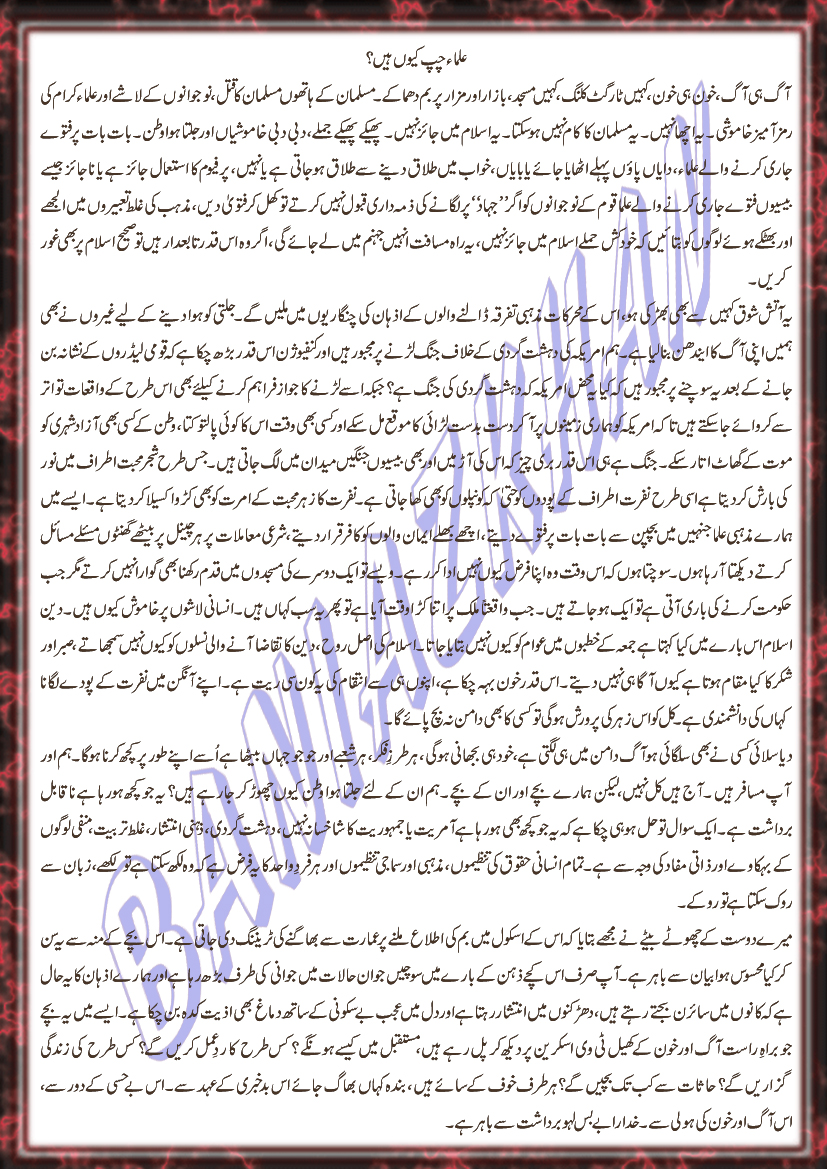 علماء چپ کیوں ہیں؟
آگ ہی آگ، خون ہی خون، کہیں ٹارگٹ کلنگ، کہیں مسجد، بازار اور مزار پر بم دھماکے۔ مسلمان کے ہاتھوں مسلمان کا قتل، نوجوانوں کے لاشے اور علماء کرام کی
رمز آمیز خاموشی۔ یہ اچھا نہیں۔ یہ مسلمان کا کام نہیں ہوسکتا۔ یہ اسلام میں جائز نہیں۔ پھیکے پھیکے جملے، دبی دبی خاموشیاں اور جلتا ہوا وطن۔ بات بات پر فتوے
جاری کرنے والے علماء، دایاں پاؤں پہلے اٹھایا جائے یا بایاں، خواب میں طلاق دینے سے طلاق ہوجاتی ہے یا نہیں، پرفیوم کا استعمال جائز ہے یا ناجائز جیسے
بیسیوں فتوے جاری کرنے والے علما قوم کے نوجوانوں کو اگر ”جہاد“ پر لگانے کی ذمہ داری قبول نہیں کرتے تو کھل کر فتویٰ دیں، مذہب کی غلط تعبیروں میں الجھے
اور بھٹکے ہوئے لوگوں کو بتائیں کہ خودکش حملے اسلام میں جائز نہیں، یہ راہ مسافت انہیں جہنم میں لے جائے گی، اگر وہ اس قدر تابعدار ہیں تو صحیح اسلام پر بھی غور
کریں۔
یہ آتش شوق کہیں سے بھی بھڑکی ہو، اس کے محرکات مذہبی تفرقہ ڈالنے والوں کے اذہان کی چنگاریوں میں ملیں گے۔ جلتی کو ہوا دینے کے لیے غیروں نے بھی
ہمیں اپنی آگ کا ایندھن بنالیا ہے۔ ہم امریکہ کی دہشت گردی کے خلاف جنگ لڑنے پر مجبور ہیں اور کنفیوژن اس قدر بڑھ چکا ہے کہ قومی لیڈروں کے نشانہ بن
جانے کے بعد یہ سوچنے پر مجبور ہیں کہ کیا یہ محض امریکہ کہ دہشت گردی کی جنگ ہے؟ جبکہ اسے لڑنے کا جواز فراہم کرنے کیلئے بھی اس طرح کے واقعات تواتر
سے کروائے جاسکتے ہیں تاکہ امریکہ کو ہماری زمینوں پر آکر دست بدست لڑائی کا موقع مل سکے اور کسی بھی وقت اس کا کوئی پالتو کتا، وطن کے کسی بھی آزاد شہری کو
موت کے گھاٹ اتار سکے۔ جنگ ہے ہی اس قدر بری چیز کہ اس کی آڑ میں اور بھی بیسیوں جنگیں میدان میں لگ جاتی ہیں۔ جس طرح شجر محبت اطراف میں نور
کی بارش کردیتا ہے اسی طرح نفرت اطراف کے پودوں کو حتیٰ کہ کونپلوں کو بھی کھا جاتی ہے۔ نفرت کا زہر محبت کے امرت کو بھی کڑوا کسیلا کردیتا ہے۔ ایسے میں
ہمارے مذہبی علما جنہیں میں بچپن سے بات بات پر فتوے دیتے، اچھے بھلے ایمان والوں کو کافر قرار دیتے، شرعی معاملات پر ہر چینل پر بیٹھے گھنٹوں مسئلے مسائل
کرتے دیکھتا آرہا ہوں۔ سوچتا ہوں کہ اس وقت وہ اپنا فرض کیوں نہیں ادا کررہے۔ ویسے تو ایک دوسرے کی مسجدوں میں قدم رکھنا بھی گوارا نہیں کرتے مگر جب
حکومت کرنے کی باری آتی ہے تو ایک ہوجاتے ہیں۔ جب واقعتاً ملک پر اتنا کڑا وقت آیا ہے تو پھر یہ سب کہاں ہیں۔ انسانی لاشوں پر خاموش کیوں ہیں۔ دین
اسلام اس بارے میں کیا کہتا ہے جمعہ کے خطبوں میں عوام کو کیوں نہیں بتایا جاتا۔ اسلام کی اصل روح، دین کا تقاضا آنے والی نسلوں کو کیوں نہیں سمجھاتے، صبر اور
شکر کا کیا مقام ہوتا ہے کیوں آگاہی نہیں دیتے۔ اس قدر خون بہہ چکا ہے، اپنوں ہی سے انتقام کی یہ کون سی ریت ہے۔ اپنے آنگن میں نفرت کے پودے لگانا
کہاں کی دانشمندی ہے۔ کل کو اس زہر کی پرورش ہوگی تو کسی کا بھی دامن نہ بچ پائے گا۔
دیا سلائی کسی نے بھی سلگائی ہو آگ دامن میں ہی لگتی ہے، خود ہی بجھانی ہوگی، ہر طرزِ فکر، ہر شعبے اور جو جو جہاں بیٹھا ہے اُسے اپنے طور پر کچھ کرنا ہوگا۔ ہم اور
آپ مسافر ہیں۔ آج ہیں کل نہیں، لیکن ہمارے بچے اور ان کے بچے۔ ہم ان کے لئے جلتا ہوا وطن کیوں چھوڑ کر جارہے ہیں؟ یہ جو کچھ ہورہا ہے ناقابل
برداشت ہے۔ ایک سوال تو حل ہوہی چکا ہے کہ یہ جو کچھ بھی ہورہا ہے آمریت یا جمہوریت کا شاخسانہ نہیں، دہشت گردی، ذہنی انتشار، غلط تربیت، منفی لوگوں
کے بہکاوے اور ذاتی مفاد کی وجہ سے ہے۔ تمام انسانی حقوق کی تنظیموں، مذہبی اور سماجی تنظیموں اور ہر فردِ واحد کا یہ فرض ہے کہ وہ لکھ سکتا ہے تو لکھے، زبان سے
روک سکتا ہے تو روکے۔
میرے دوست کے چھوٹے بیٹے نے مجھے بتایا کہ اس کے اسکول میں بم کی اطلاع ملنے پر عمارت سے بھاگنے کی ٹریننگ دی جاتی ہے۔ اس بچے کے منہ سے یہ سن
کر کیا محسوس ہوا بیان سے باہر ہے۔ آپ صرف اس کچے ذہن کے بارے میں سوچیں جو ان حالات میں جوانی کی طرف بڑھ رہا ہے اور ہمارے اذہان کا یہ حال
ہے کہ کانوں میں سائرن بجتے رہتے ہیں، دھڑکنوں میں انتشار رہتا ہے اور دل میں عجب بے سکونی کے ساتھ دماغ بھی اذیت کدہ بن چکا ہے۔ ایسے میں یہ بچے
جو براہِ راست آگ اور خون کے کھیل ٹی وی اسکرین پر دیکھ کر پل رہے ہیں، مستقبل میں کیسے ہونگے؟ کس طرح کا ردِ عمل کریں گے؟ کس طرح کی زندگی
گزاریں گے؟ حادثات سے کب تک بچیں گے؟ ہر طرف خوف کے سائے ہیں، بندہ کہاں بھاگ جائے اس بدخبری کے عہد سے۔ اس بے حسی کے دور سے،
اس آگ اور خون کی ہولی سے۔ خدارا بے بس لہو برداشت سے باہر ہے۔
BANIAZKHAN